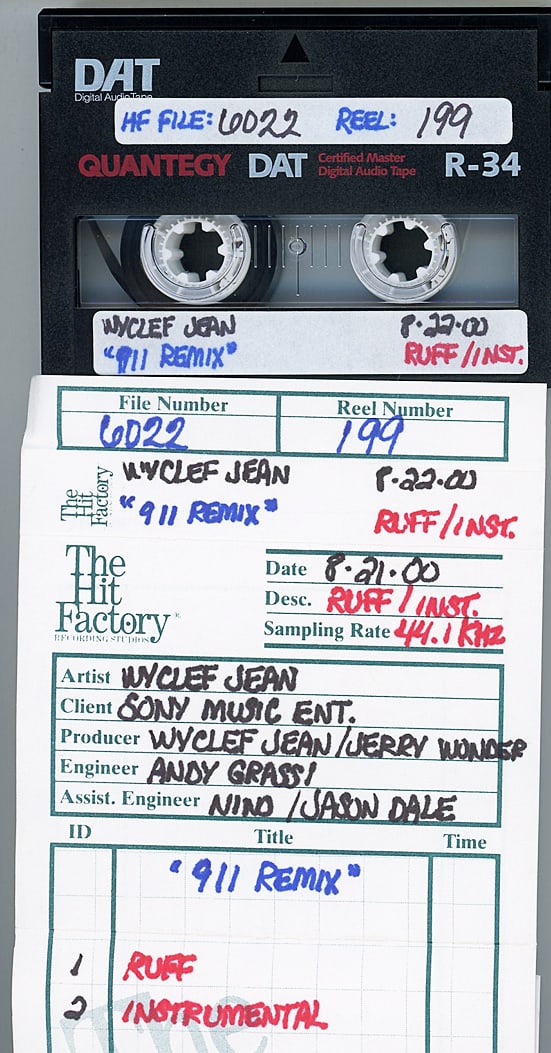 DAT
Digital Audio Tape
HF FILE: 6022 REEL: 199
QUANTEGY DAT Certified Master Digital Audio Tape R-34
WYCLEF JEAN 8·22·00
"911 REMIX" RUFF/INST.
File Number Reel Number
6022 199
The Hit Factory
WYCLEF JEAN 8·22·00
"911 REMIX" RUFF/INST.
The
Hit
Factory
RECORDING STUDIOS
Date 8·21·00
Desc. RUFF/INST.
Sampling Rate 44.1 KHZ
Artist WYCLEF JEAN
Client SONY MUSIC ENT.
Producer WYCLEF JEAN/JERRY WONDER
Engineer ANDY GRASSI
Assist. Engineer NINO /JASON DALE
ID Title Time
"911 REMIX"
1 RUFF
2 INSTRUMENTAL
The